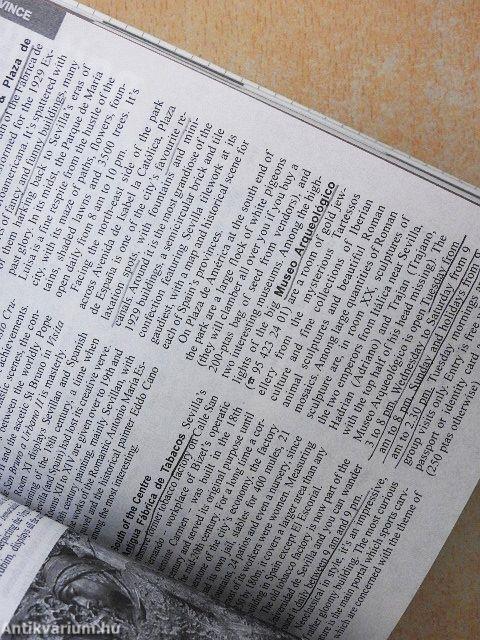 VINCE
& Plaza de
of the Fábrica de
formed for the 1929 Ex-
eroamericana. It's spattered with
ts of fancy and funny buildings, many
of them harking back to Sevilla's eras of
past glory. In its midst, the Parque de María
Luisa is a fine respite from the hustle of the
city, with its maze of paths, flowers, foun-
tains, shaded lawns and 3500 trees. It's
open daily from 8 am to 10 pm.
Facing the north-east side of the park
across Avenida de Isabel la Católica, Plaza
de España is one of the city's favourite re-
laxation spots, with fountains and mini-
canals. Around it is the most grandiose of the
1929 buildings, a semicircular brick and tile
confection featuring Sevilla tilework at its
gaudiest, with a map and historical scene for
each of Spain's provinces.
On Plaza de América at the south end of
the park are a large flock of white pigeons
(they will clamber all over you if you buy a
200-ptas bag of seed from vendors), and
two interesting museums. Among the high-
lights of the big Museo Arqueológico
(☎ 95 423 24 01) are a room of gold jew-
ellery from the mysterious Tartessos
culture and fine collections of Iberian
animal sculptures and beautiful Roman
mosaics. Among large quantities of Roman
sculpture are, in room XX, sculptures of
the two emperors from Itálica near Sevilla,
Hadrian (Adriano) and Trajan (Trajano,
with the top half of his head missing). The
Museo Arqueológico is open Tuesday from
3 to 8 pm, Wednesday to Saturday from 9
am to 8 pm, Sunday and holiday from 9
am to 2.30 pm. Tuesday mornings are
group visits only. Entry is free with
passport or identity card
(250 ptas otherwise)
achievements.
ceres, the con-
between the worldly Pope
and the ascetic St Bruno in Visita
San Bruno a Urbano II is masterly.
Room XI displays Sevillan and Spanish
painting of the 18th century, a time when
Sevilla (and Spain) had lost its creative verve.
Rooms XII to XIV are given over to 19th and
20th century painting, mainly Sevillan, with
works of the Romantic Antonio María Es-
quivel and the historical painter Eddo Cano
among the most interesting.
South of the Centre
Antigua Fábrica de Tabacos Sevilla's
former tobacco factory on Calle San
workplace of Bizet's operatic
Carmen - was built in the 18th
century and served its original purpose until
the mid-20th century. For a long time a cor-
of the city's economy, the factory
its own jail, stables for 400 mules, 21
fountains, 24 patios and even a nursery, since
most of its workers were women. Measuring
it covers a larger area than any
building in Spain except El Escorial.
The old tobacco factory is now part of the
Universidad de Sevilla and you can wander
daily between 9 am and 9 pm.
Neoclassical in style, it's an impressive,
rather gloomy building. The most curious
feature is the main portal which sports carv-
ings which are concerned with the theme of
Antikvárium.hu